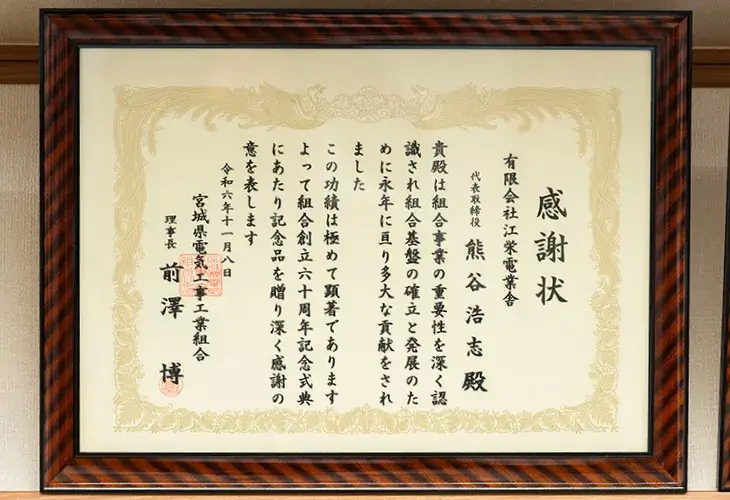 感謝状
有限会社江栄電業舎
代表取締役 熊谷浩志殿
貴殿は組合事業の重要性を深く認
識され組合基盤の確立と発展のた
めに永年に亘り多大な貢献をされ
ました
この功績は極めて顕著であります
よって組合創立六十周年記念式典
にあたり記念品を贈り深く感謝の
意を表します
令和六年十一月八日
宮城県電気工事工業組合
理事長 前澤博